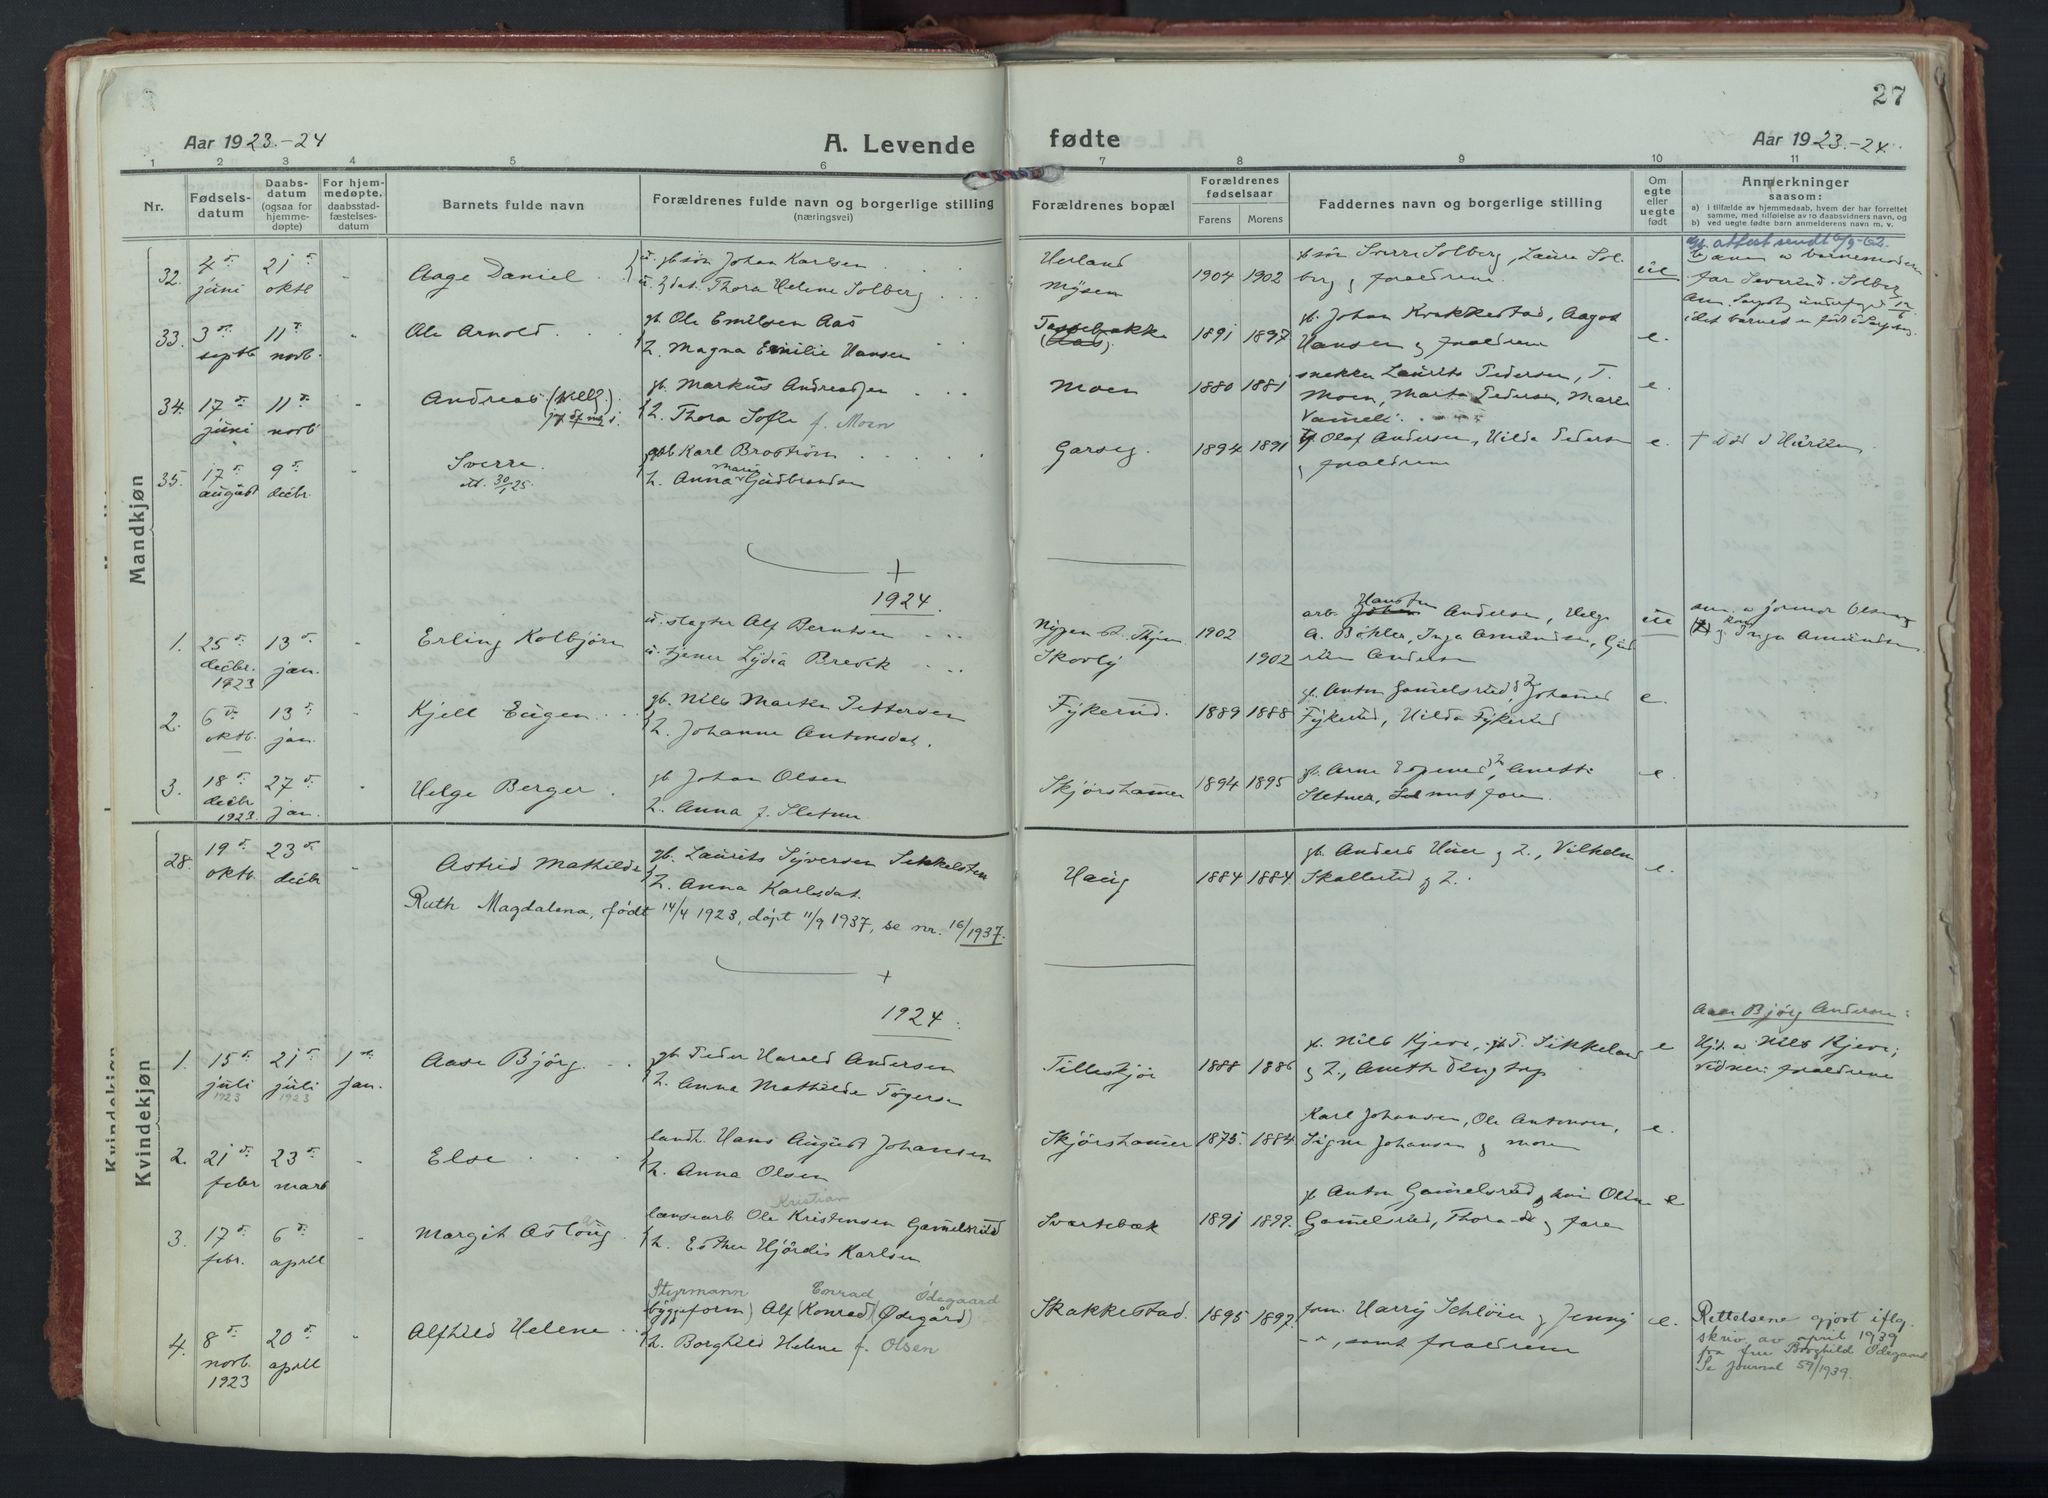 27
Aar 1923.-24
A. Levende
fødte
Aar 1923.-24.
1 2 3 4 5 6 7 8 9 10 11
Nr.
Fødsels-
datum
Daabs-
datum
(ogsaa for
hjemme-
døpte)
For hjem-
medøpte,
daabsstad-
fæstelses-
datum
Barnets fulde navn
Forældrenes fulde navn og borgerlige stilling
(næringsvei)
Forældrenes bopæl
Forældrenes
fødselsaar
Farens Morens
Faddernes navn og borgerlige stilling
Om
egte
eller
uegte
født
Anmerkninger
saasom:
a) i tilfælde av hjemmedaab, hvem der har forrettet
samme, med tilføielse av to daabsvidners navn, og
b) ved uegte fødte barn anmelderens navn m. v.
Mandkjøn
32. 4 juni 21 okt Aage Daniel
u. gb søn Johan Karlsen
u. gdat. Thora Helene Solberg
Herland
Mysen
1904 1902
Sverre Solberg, Laura Sol-
berg & foraeldrene.
ue
attest sendt 6/9-62.
far Severind Solberg
33. 3 septb 11 novb Ole Arnold
gb. Ole Emilsen Aas
h. Magna Emilie Hansen
Tossebakke
(Aas)
1891 1897
gb. Johan Krakkestad, Aagot
Hansen & foraeldrene
e.
34. 17 juni 11 novb Andreas
gb. Markus Andreassen
h. Thora Sofie f. Moen
Moen
1880 1881
snekker Laurits Pedersen, T.
Moen, Marta Pedersen, Marie
e.
35. 17 august 9 decbr. Sverre.
30/1 25.
gb Karl Broström
h. Anna Marie Gudbrandsen
Garseg.
1894 1891
Olaf Andersen, Hilda Peders
& foraeldrene
e.
1924.
1. 25 decbr. 1923 13 jan. Erling Kolbjørn
u. slagter Alf Berntsen
u. tjener Lydia Brevik
Skovly
1902
1902
arb. Andersen, Helge
A. Böhler, Inga Amundsen, Gud
run Andersen
ue
Inga Amundsen
2. 6 oktb. 13 jan. Kjell Eugen
gb. Nils Martin Pettersen
h. Johanne Antonsdat.
Fykerud.
1889 1888
gb. Anton Gamelsrud & h, Johannes
Fykerud, Hilda Fykerud
e.
3. 18 decbr 1923. 27 jan. Helge Berger
gb Johan Olsen
h. Anna f. Sletner
Skjørshamer
1894 1895
gb. Arne Espenes & h, Anette
Sletner, samt faren.
e.
Kvindekjøn
28. 19 oktb. 23 decbr Astrid Mathilde
gb. Laurits Syversen Sikkelsten
h. Anna Karlsdat.
Haug
1884 1884
gb. Anders Huer & h., Vilhelm
Skallerud & h.
e.
Ruth Magdalena, født 14/4 1923, døpt 11/9 1937, se nr. 16/1937.
1924.
1. 15 juli 1923 21 juli 1923 1 jan. Aase Bjørg
gb. Peder Harald Andersen
h. Anna Mathilde Tøgersen
Tilleskjør
1888 1886
gb. Nils Kjeve, T. Sikkeland
& h., Anette
e
Aase Bjørg Andersen:
Hjd. a Nils Kjeve;
vidner: foraeldrene
2. 21 febr 23 mars Else
landh. Hans August Johansen
h. Anna Olsen
Skjørshamer
1875. 1884
Karl Johansen, Ole Antonsen,
Signe Johansen & moren
e.
3. 17 febr. 6 april Margit Aslaug
Kristian
lænsearb Ole Kristensen Gamelsrud
h. Esther Hjördis Karlsen
Svartebæk
1891 1899.
gb Anton Gamelsrud,
Gamelsrud, Thora do & faren
e
4. 8 novb. 1923 20 april Alfhild Helene
Styrmann Conrad Ødegaard
(byggeform) Alf (Konrad) (Ødegård)
h. Borghild Helene f. Olsen
Skakkestad.
1895 1897.
form. Harry Schløier & Jenny
-"-, samt foraeldrene
e.
Rettelsene gjort iflg.
skriv. av april 1939
fra fru Borghild Ødegaard
Se journal 59/1939.